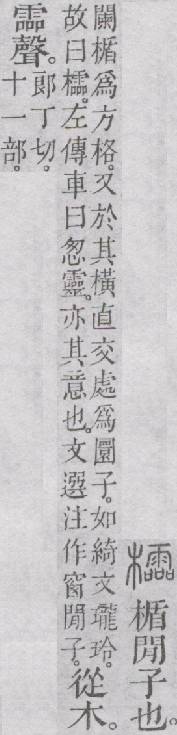 櫺 楯閒子也。
闌楯爲方格。又於其橫直交處爲圜子。如綺文瓏玲。
故曰櫺。左傳車曰怱靈。亦其意也。文選注作窗閒子。
從木。
霝聲。
郎丁切。
十一部。